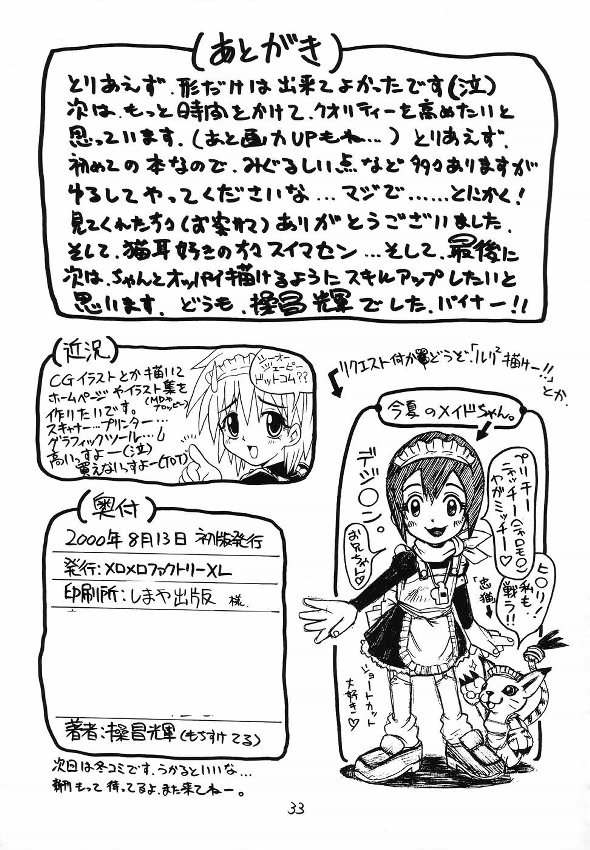 (あとがき)
とりあえず、形だけは出来てよかったです(泣)
次は、もっと時間をかけて、クオリティーを高めたいと
思っています。(あと画力UPもね…)とりあえず、
初めての本なので、みぐるしい点など多々ありますが
ゆるしてやってくださいな…マジで……とにかく!
見てくれた方々(お客さて)ありがとうございました。
そして、猫耳好きの方々スイマセン…そして、最後に
次は、ちゃんとオッパイ描けるようにスキルアップしたいと
思います。どうも、操昌輝でした。バイナー!!
(近況)
CGイラストとか描いて
ホームページやイラスト集を
作りたいです。(MDやフロッピー)
スキャナー…プリンター…
グラフィックツール…し
高いっすよー(泣)
買えないっすよー(T0T)
ジーオー
ジェーピー
ドットコム??
リクエスト何か
どうぞ、「ルリルリ描けー!!」
とか、
今夏のメイドちゃん。
デジ〇ン。
お兄ちゃん♡
プリチー
ニャッチー(ニャロモ〇)
やがミッチー♡
ヒ〇リ!
私も
戦う!!
「忠猫」
ショートカット
大好き♡
(奥付)
2000年8月13日 初版発行
発行:メロメロファクトリーXL
印刷所:しまや出版 様
著者:操昌輝(もちすけてる)
次回は冬コミです、うかるといいな…
新刊もって待ってるよ、また来てねー。
33